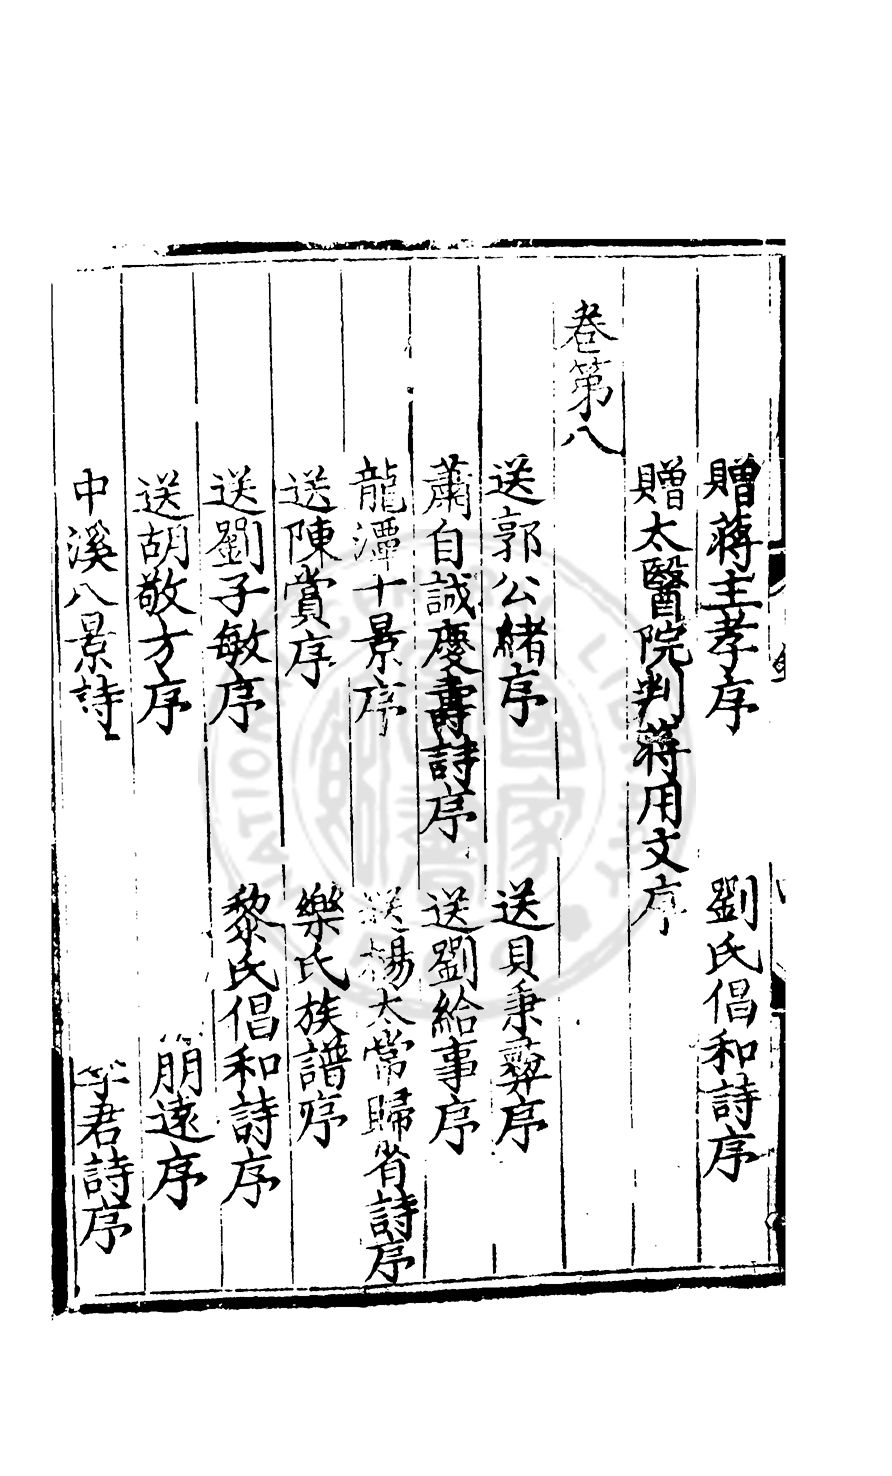 贈蔣主孝序　劉氏倡和詩序
贈太醫院判蔣用文序
卷第八
送郭公緒序　送貝秉彝序
蕭自誠慶壽詩序　送劉給事序
龍潭十景序　送楊太常歸省詩序
送陳賞序　樂氏族譜序
送劉子敏序　黎氏倡和詩序
送胡敬方序　朋遠序
中溪八景詩　君詩序